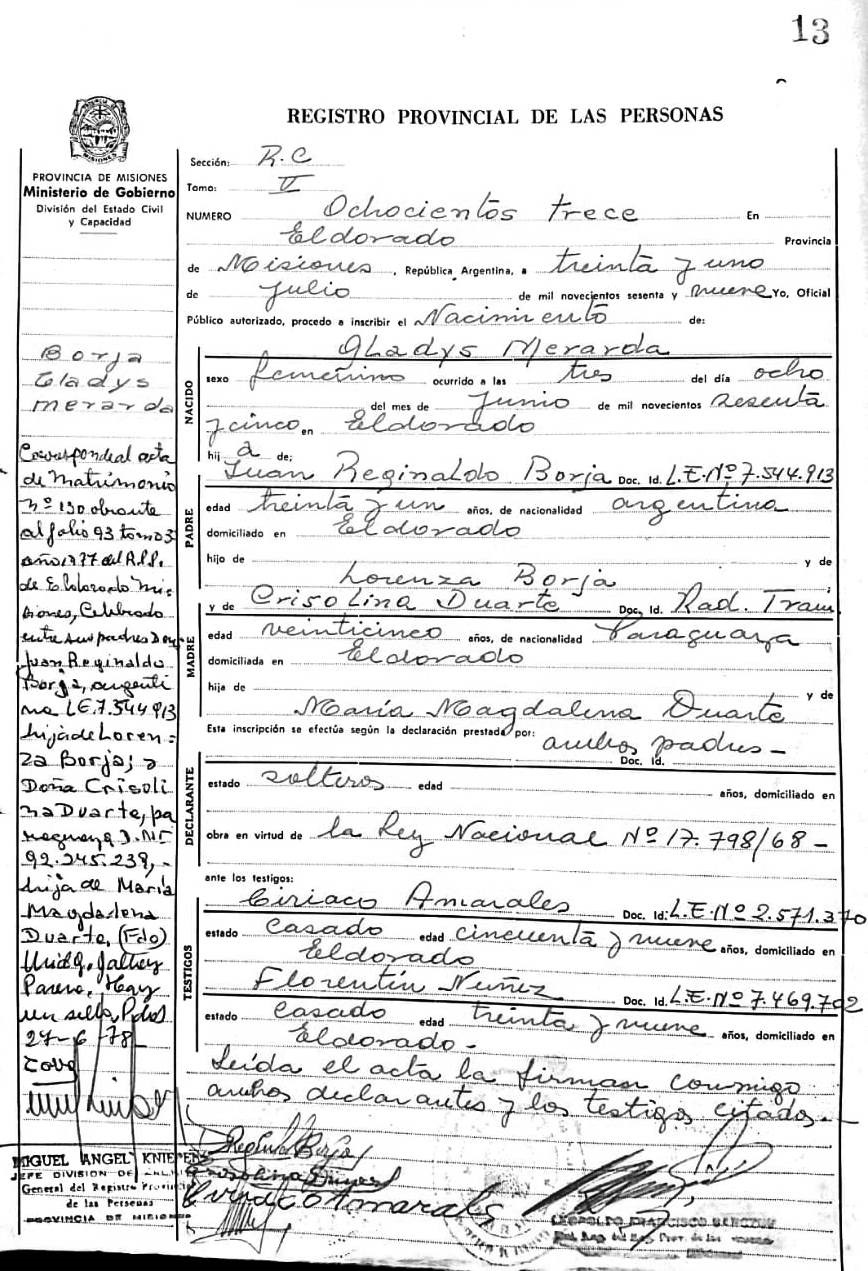 13
REGISTRO PROVINCIAL DE LAS PERSONAS
PROVINCIA DE MISIONES
Ministerio de Gobierno
División del Estado Civil
y Capacidad
Borja
Gladys
merarda
Corresponde al acta
de Matrimonio
Nº 130 obrante
al folio 93 tomo 3
año 1977 del R.P.P.
de Eldorado Mi-
siones, Celebrado
entre sus padres Don
Juan Reginaldo
Borja, argenti
no L.E. 7.544.913
hijo de Loren=
za Borja; y
Doña Crisoli
na Duarte, pa
raguaya D.NI
92.245.239,-
hija de María
Magdalena
Duarte, (Fdo)
Hay
un sello, Pdas
27-6-78-
MIGUEL ANGEL
JEFE DIVISION DE
General del Registro Provincial
de las Personas
PROVINCIA DE MISIONES
Sección: R.C
Tomo: V
NUMERO Ochocientos trece En
Eldorado Provincia
de Misiones, República Argentina, a treinta y uno
de Julio de mil novecientos sesenta y nueve Yo, Oficial
Público autorizado, procedo a inscribir el Nacimiento de:
NACIDO
Gladys Merarda
sexo femenino ocurrido a las tres del día ocho
del mes de Junio de mil novecientos sesenta
y cinco en Eldorado
hij a de:
PADRE
Juan Reginaldo Borja Doc. Id. L.E.Nº 7.544.913
edad treinta y un años, de nacionalidad argentina
domiciliado en Eldorado
hijo de y de
Lorenza Borja;
MADRE
y de Crisolina Duarte Doc. Id. Rad. Tram.
edad veinticinco años, de nacionalidad Paraguaya
domiciliada en Eldorado
hija de y de
María Magdalena Duarte
Esta inscripción se efectúa según la declaración prestada por: ambos padres-
Doc. Id.
DECLARANTE
estado solteros edad años, domiciliado en
obra en virtud de la Ley Nacional Nº 17.798/68-
ante los testigos:
TESTIGOS
Ciriaco Amarales Doc. Id: L.E.Nº 2.571.370
estado Casado edad cincuenta y nueve años, domiciliado en
Eldorado
Florentín Nuñez Doc. Id. L.E.Nº 7.469.702
estado Casado edad treinta y nueve años, domiciliado en
Eldorado-
Leída el acta la firman conmigo
ambos declarantes y los testigos citados.-
Borja
Ciriaco Amarales
LEOPOLDO FRANCISCO